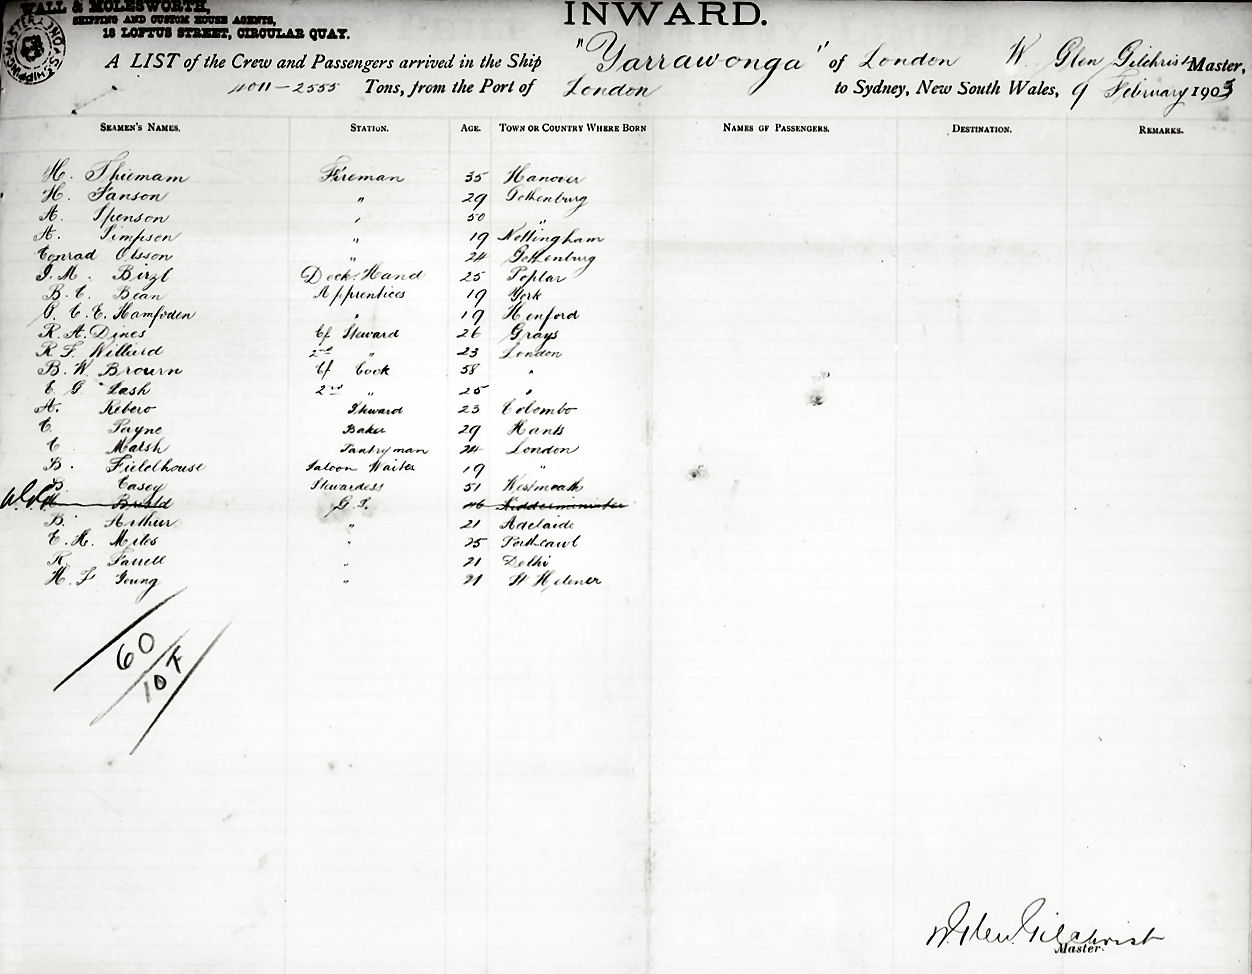 WALL & MOLESWORTH,
SHIPPING AND CUSTOM HOUSE AGENTS,
18 LOFTUS STREET, CIRCULAR QUAY.
INWARD.
A LIST of the Crew and Passengers arrived in the Ship "Yarrawonga" of London W. Glen Gilchrist Master,
4011-2555 Tons, from the Port of London to Sydney, New South Wales, 9 February 1903
SEAMEN'S NAMES. STATION. AGE. TOWN OR COUNTRY WHERE BORN NAMES OF PASSENGERS. DESTINATION. REMARKS.
H. Thiemam Fireman 35 Hanover
H. Janson " 29 Gothenburg
A. Spenson " 50 "
A. Simpson " 19 Nottingham
Conrad Olsson " 24 Gothenburg
J. M. Birzl Deck Hand 25 Poplar
B. C. Bean Apprentices 19 York
G. C. E. Hamfoden " 19 Henford
R. A. Dines Cf Steward 26 Grays
R F. Willurd 2nd " 23 London
B. W Brourn Cf Cook 58 "
E G. Lash 2nd " 25 "
A. Rebero Steward 23 Colombo
C. Payne Baker 29 Hants
C. Marsh Pantryman 24 London
B. Fieldhouse Saloon Waiter 19 "
B. Casey Stewardess 51 Westmeath
G. S. 46 Kidderminster
B. Arthur " 21 Adelaide
E. H. Miles " 25 Porthcawl
R. Farrell " 21 Delhi
H. F Young " 21 St Helener
60
10 F
W. Glen Gilchrist
Master.